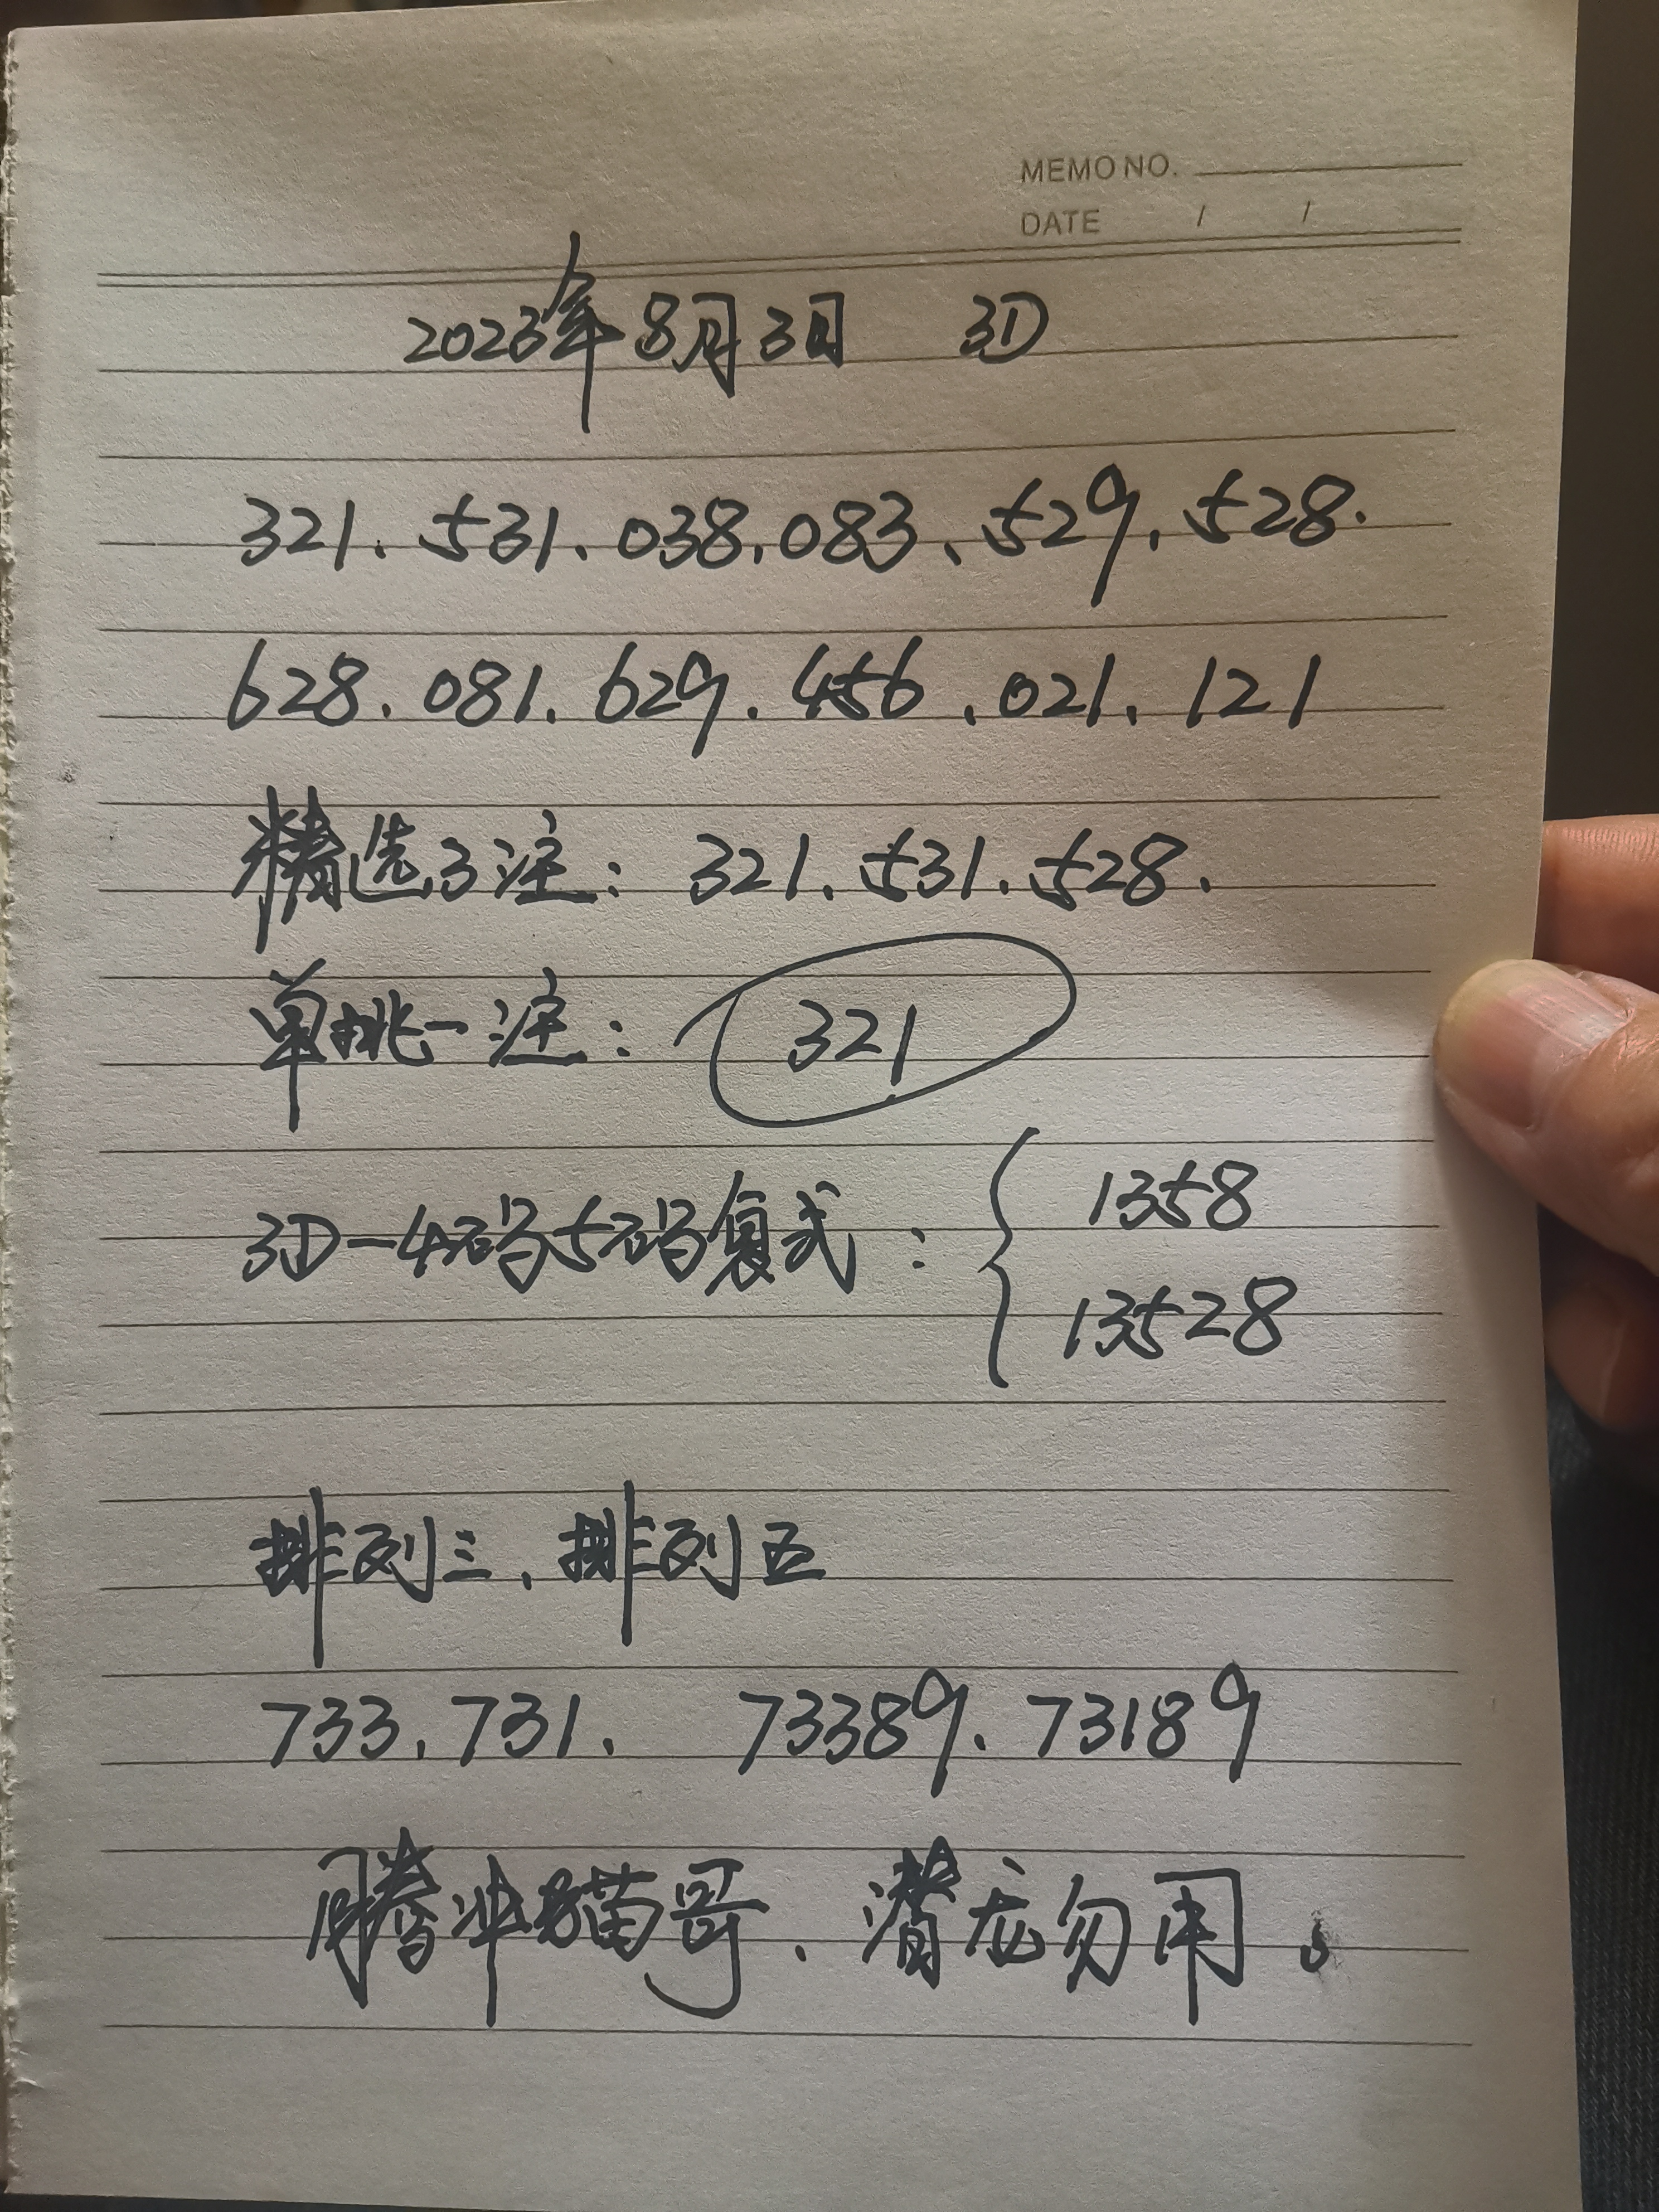 MEMO NO.
DATE / /
2023年8月3日 3D
321、531、038、083、529、528.
628、081、629、456、021、121
精选3注：321、531、528.
单挑一注：321
3D—4码5码复式：
1358
13528
排列三、排列五
733、731、 73389、73189
腾冲猫哥、潜龙勿用。